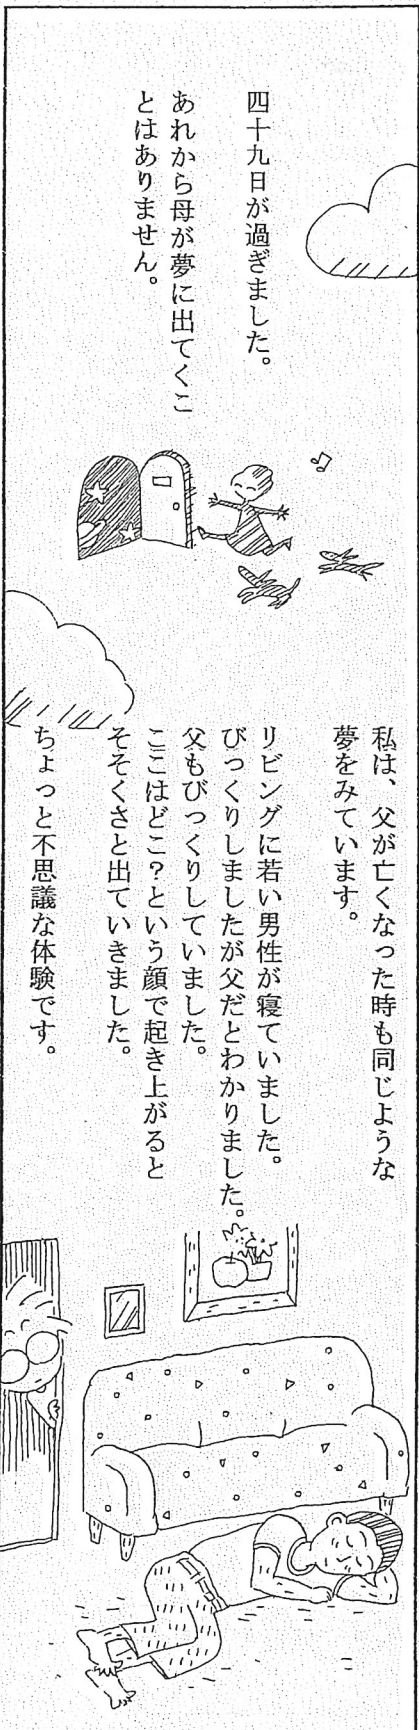 四十九日が過ぎました。
あれから母が夢に出てくこ
とはありません。
私は、父が亡くなった時も同じような
夢をみています。
リビングに若い男性が寝ていました。
びっくりしましたが父だとわかりました。
父もびっくりしていました。
ここはどこ？という顔で起き上がると
そそくさと出ていきました。
ちょっと不思議な体験です。